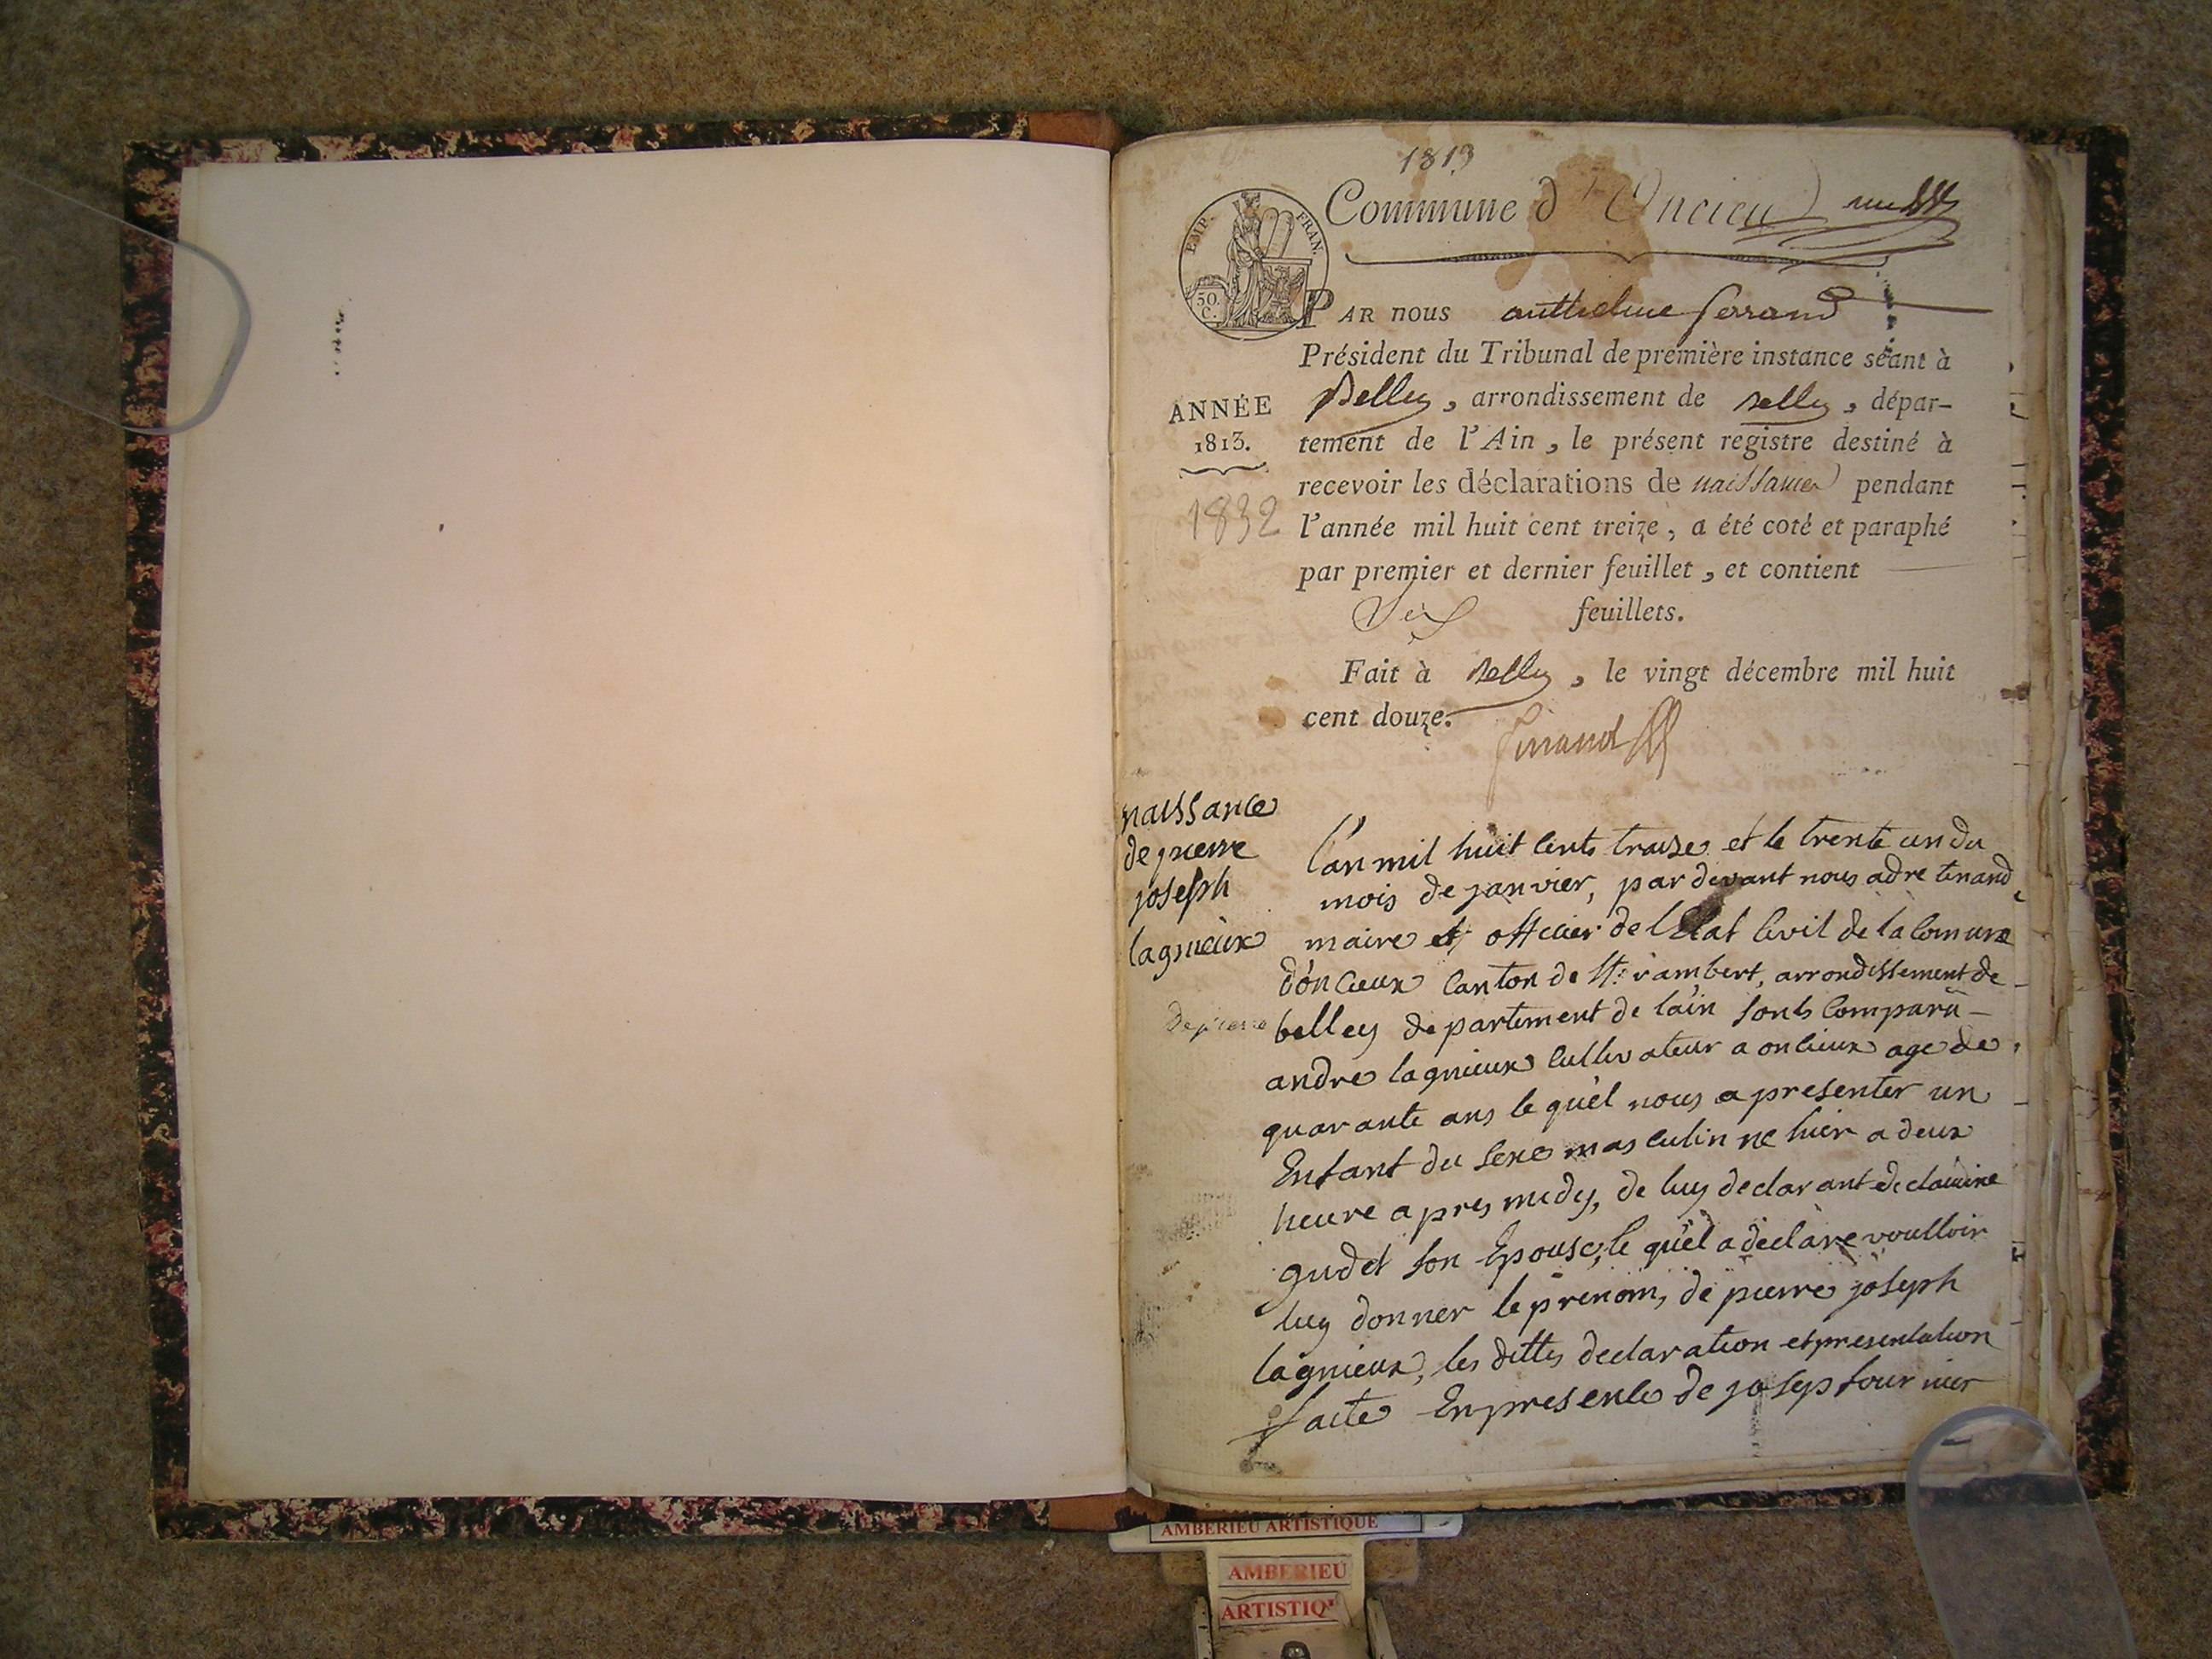 1813
Commune d'Oncieu
EMP. FRAN.
50.
C.
PAR nous anthelme ferrand
Président du Tribunal de première instance séant à
Belley, arrondissement de Belley, dépar-
tement de l'Ain, le présent registre destiné à
recevoir les déclarations de naissances pendant
l'année mil huit cent treize, a été coté et paraphé
par premier et dernier feuillet, et contient
Six feuillets.
Fait à Belley, le vingt décembre mil huit
cent douze.
ferrand
ANNÉE
1813.
1832
naissance
de pierre
joseph
lagnieux
De pierre
l'an mil huit cents traize et le trente un du
mois de janvier, par devant nous adre tenand
maire et officier de l'Etat Civil de la Comune
d'oncieux Canton de St. rambert, arrondissement de
belley departement de lain sonts Comparu
andre lagnieux Cultivateur a oncieux age de
quarante ans le quel nous a presenter un
Enfant du sexe masculin ne hier a deux
heure apres midy, de luy declarant de claudine
gudet son Epouse, le quel a declare voulloir
luy donner le prenom, de pierre joseph
lagnieux, les dittes declaration et presentation
faite En presence de josep fournier
AMBERIEU ARTISTIQUE
AMBERIEU
ARTISTIQ